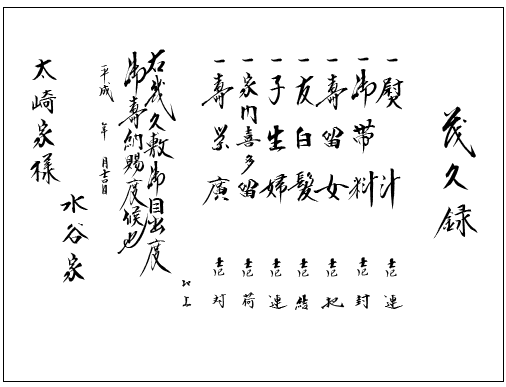 茂久録
一熨斗 壱連
一御帯料 壱封
一壽留女 壱把
一友白髪 壱結
一子生婦 壱連
一家内喜多留 壱荷
一壽栄廣 壱対
以上
右幾久敷御目出度
御壽納賜度候也
平成 年 月吉日
水谷家
太崎家様